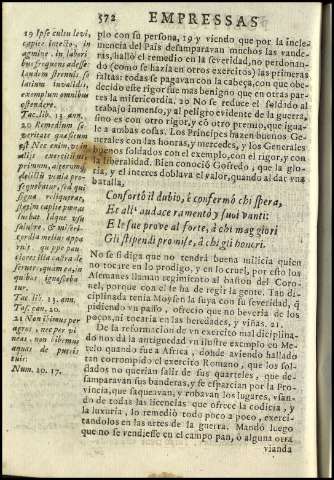 372 EMPRESSAS
19 Ipse cultu levi,
capite intecto, in
agmine, in labori-
bus frequens adesse:
laudem strenuis, so-
latium invalidis,
exemplum omnibus
ostendere.
Tac. lib. 13. ann.
20 Remedium se-
veritate quæsitum
est. Nec enim, ut in
aliis exercitibus
primum, alterumque
delictũ venia prose-
quebatur, sed qui
signa reliquerat,
statim capite pœnas
luebat. Idque usu
salubre, & miseri-
cordia melius appa-
ruit: quippe pau-
ciores illa castra de-
seruere, quam ea, in
quibus ignosceba-
tur.
Tac. lib. 13. ann.
Tas. cant. 20.
21 Non ibimus per
agros, nec per vi-
neas, non bibemus
aquas de puteis
tuis:
Num. 20. 17.
plo con su persona, 19 y viendo que por la incle-
mencia del Païs desamparavan muchos las vande-
ras, halló el remedio en la severidad, no perdonan-
do (como se hazía en otros exercitos) las primeras
faltas: todas se pagavan con la cabeça, con que obe-
decido este rigor fue mas benigno que en otras par-
tes la misericordia. 20 No se reduce el soldado al
trabajo immenso, y al peligro evidente de la guerra,
sino es con otro rigor, y cõ otro premio, que igua-
le a ambas cosas. Los Principes hazen buenos Ge-
nerales con las honras, y mercedes, y los Generales
buenos soldados con el exemplo, con el rigor, y con
la liberalidad. Bien conoció Gofredo, que la glo-
ria, y el interes doblava el valor, quando al dar una
batalla,
Confortò il dubio, è confermó chi spera,
Et all' audace ramentò y suoi vanti:
E le sue prove al forte, à chi maggiori
Gli stipendi promise, à chi gli honori.
No se si diga que no tendrà buena milicia quien
no tocare en lo prodigo, y en lo cruel, por esto los
Alemanes llaman regimiento al baston del Coro-
nel, porque con el se ha de regir la gente. Tan di-
ciplinada tenia Moysen la suya con su severidad, q̃
pidiendo un passo, ofreció que no beveria de los
poços, ni tocaria en las heredades, y viñas. 21.
De la reformacion de un exercito mal diciplina-
do nos dà la antiguedad un ilustre exemplo en Me-
telo quando fue a Africa, donde aviendo hallado
tan corrompido el exercito Romano, que los sol-
dados no querian salir de sus quarteles, que de-
samparavan sus banderas, y se esparcian por la Pro-
vincia, que saqueavan, y robavan los lugares, vian-
do de todas las licencias que ofrece la codicia, y
la luxuria, lo remedió todo poco a poco, exerci-
tandolos en las artes de la guerra. Mandó luego
que no se vendiesse en el campo pan, ó alguna otra
vianda